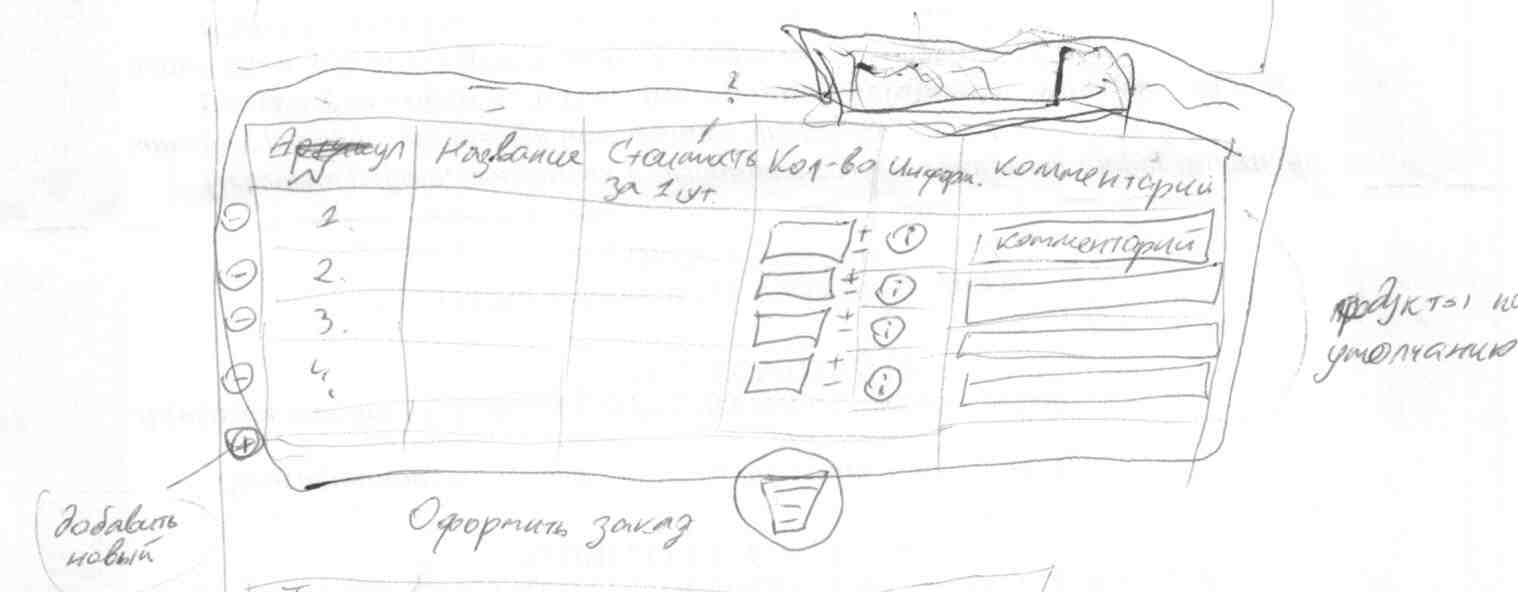 ?
Артикул Название Стоимость Кол-во Информ. Комментарий
за 1 шт.
1.
± i комментарий
2.
± i
3.
± i
4.
± i
продукты по
умолчанию
+
добавить
новый
Оформить заказ